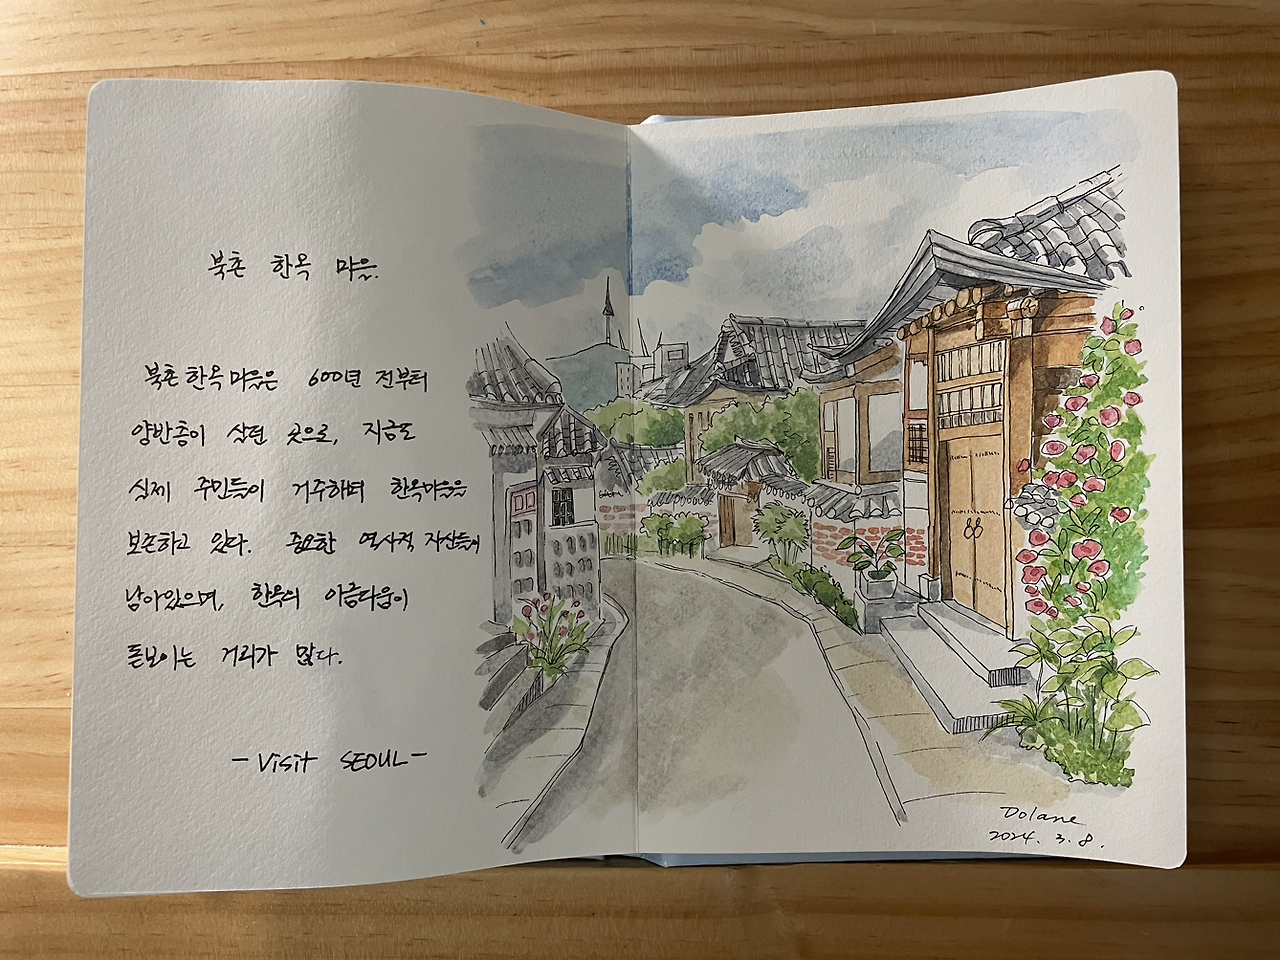 북촌 한옥 마을.
북촌 한옥마을은 600년 전부터
양반층이 살던 곳으로, 지금도
실제 주민들이 거주하며 한옥마을을
보존하고 있다. 중요한 역사적 자산들이
남아있으며, 한옥의 아름다움이
돋보이는 거리가 많다.
- Visit SEOUL -
Dolane
2024. 3. 8.